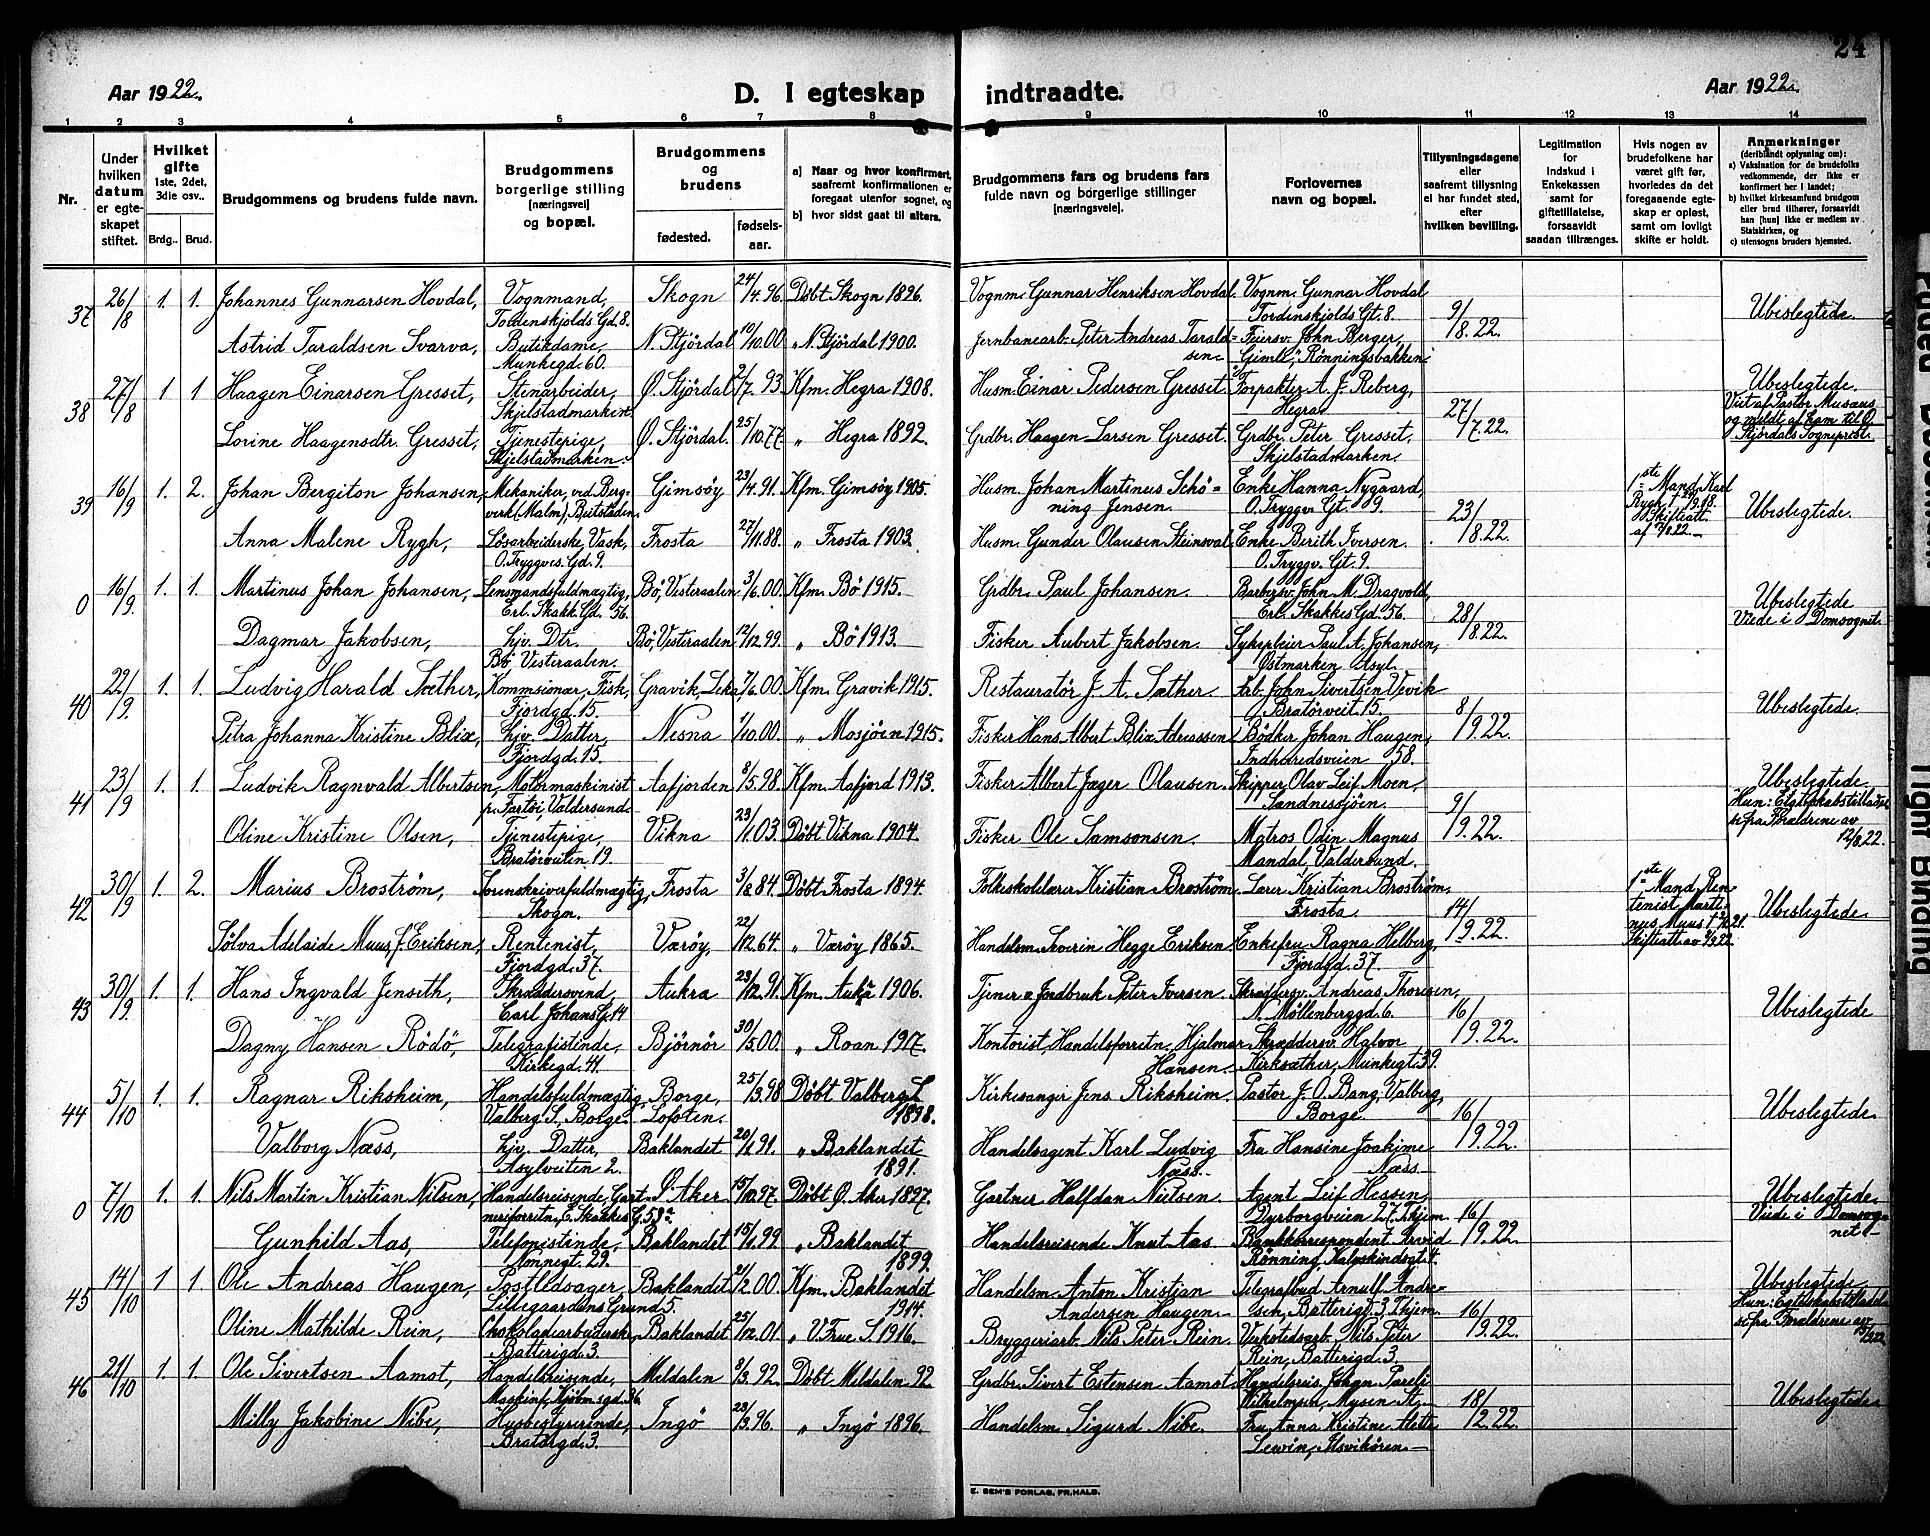 24
Aar 1922.
D. I egteskap
indtraadte.
Aar 1922.
1 2 3 4 5 6 7 8 9 10 11 12 13 14
Nr.
Under hvilken datum er egteskapet stiftet.
Hvilket gifte 1ste, 2det, 3die osv..
Brdg.. Brud.
Brudgommens og brudens fulde navn.
Brudgommens borgerlige stilling [næringsvei] og bopæl.
Brudgommens og brudens
fødested.
fødselsaar.
a) Naar og hvor konfirmert, saafremt konfirmationen er foregaat utenfor sognet, og
b) hvor sidst gaat til alters.
Brudgommens fars og brudens fars fulde navn og borgerlige stillinger [næringsveie].
Forlovernes navn og bopæl.
Tillysningsdagene eller saafremt tillysning ei har fundet sted, efter hvilken bevilling.
Legitimation for Indskud i Enkekassen samt for giftetillatelse, forsaavidt saadan tiltrænges.
Hvis nogen av brudefolkene har været gift før, hvorledes da det foregaaende egteskap er opløst, samt om lovligt skifte er holdt.
Anmerkninger (deriblandt oplysning om):
a) Vaksination for de brudefolks vedkommende, der ikke er konfirmert her i landet;
b) hvilket kirkesamfund brudgom eller brud tilhører, forsaavidt han [hun] ikke er medlem av Statskirken, og
c) utensogns bruders hjemsted.
37 26/8 1. 1. Johannes Gunnarsen Hovdal, Vognmand, Tordenskjolds Gd. 8. Skogn 24/4.96. Døbt Skogn 1896. Vognm. Gunnar Henriksen Hovdal. Vognm. Gunnar Hovdal Tordenskjolds Gt. 8. 9/8.22. Ubeslegtede.
Astrid Taraldsen Svarva, Butikdame, Munkegd. 60. N. Stjördal 10/10.00 " N. Stjördal 1900. Jernbanearb. Peter Andreas Taraldsen Feiersv. John Berger, "Gimle", Rönningsbakken
38 27/8 1 1 Haagen Einarsen Gresset, Stenarbeider, Skjelstadmarken Ø. Stjördal 2/7. 93. Kfm. Hegra 1908. Husm. Einar Pedersen Gresset. Forpakter A. J. Reberg, Hegra 27/7.22. Ubeslegtede. Viet af Pastor Musæus og meldt af ham til Ø. Stjördals Sogneprest.
Lorine Haagensdtr. Gresset, Tjenestepige, Skjelstadmarken. Ø. Stjördal. 25/10.77 " Hegra 1892. Grdbr. Haagen Larsen Gresset. Grdbr. Peter Gresset, Skjelstadmarken.
39 16/9 1. 2. Johan Bergiton Johansen, Mekaniker, ved Bergverk (Malm), Beitstaden. Gimsøy 23/4.91. Kfm. Gimsøy 1905. Husm. Johan Martinus Schöning Jensen. Enke Hanna Nygaard, O. Tryggv. Gt. 9. 23/8.22. 1ste Mand, Karl Rygh, Skifteatt. Ubeslegtede.
Anna Malene Rygh, Løsarbeiderske, Vask, O. Tryggves. Gd. 9. Frosta 27/11.88. " Frosta 1903. Husm. Gunder Olausen Steinsval. Enke Berith Iversen. O. Tryggv. Gt. 9.
0 16/9. 1. 1. Martinus Johan Johansen, Lensmandsfuldmægtig, Erl. Skakk. Gd. 56. Bø, Vesteraalen 3/6.00. Kfm. Bø 1915. Grdbr. Paul Johansen. Barbersv. John M. Dragvold, Erl. Skakkes Gd. 56. 28/8.22. Ubeslegtede Viede i Domsognet.
Dagmar Jakobsen, hjv. Dtr. Bø, Vesteraalen. Bø, Vestraalen 12/12.99. " Bø 1913. Fisker Aubert Jakobsen. Sykepleier Paul A. Johansen, Østmarken Asyl.
40 22/9. 1. 1. Ludvig Harald Sæther, Kommsionær, Fisk, Fjordgd. 15. Gravik, Leka, 7/6.00. Kfm. Gravik 1915. Restauratör J. A. Sæther. Arb. John Sivertsen Vevik Bratörveit. 15. 8/9.22. Ubeslegtede.
Petra Johanna Kristine Blix, hjv. Datter, Fjordgd. 15. Nesna 1/10.00. " Mosjöen 1915. Fisker Hans Albert Blix Adriassen Bødker Johan Haugen, Indherredsveien 58.
41 23/9 1. 1. Ludvik Ragnvald Albertsen, Motormaskinist p. Fartöi, Valdersund. Aafjorden 8/5.98. Kfm. Aafjord 1913. Fisker Albert Jager Olausen. Skipper Olav Leif Moen, Sandnessjöen. 9/9.22. Ubeslegtede Hun: Egteskabstilladelse fra Forældrene av 12/8.22.
Oline Kristine Olsen, Tjenestepige, Bratörveiten 19 Vikna 23/1.03. Døbt Vikna 1904. Fisker Ole Samsonsen. Matros Odin Magnus Mandal, Valdersund.
42 30/9 1. 2. Marius Broström, Sorenskriverfuldmægtig, Skogn. Frosta 3/8.84. Døbt Frosta 1894. Folkeskolelærer Kristian Broström. Lærer Kristian Broström, Frosta. 14/9.22. 1ste Mand, Rentenist Martinus Muus Skifteatt. av Ubeslegtede
Sölva Adelaide Muus, f. Eriksen, Rentenist, Fjordgd. 37. Værøy, 22/12.64. " Værøy 1865. Handelsm. Severin Hegge Eriksen. Enkefru Ragna Helberg, Fjordgd. 37.
43 30/9. 1. 1. Hans Ingvald Jenseth, Skræddersvend, Carl Johans G. 14 Aukra 23/12.91. Kfm. Aukra 1906. Tjener v. Jordbruk Peter Iversen. Skræddersv. Andreas Thoresen, N. Møllenberggd. 6. 16/9.22. Ubeslegtede
Dagny Hansen Rödö, Telegrafistinde, Kirkegd. 41. Björnör 30/5.00. " Roan 1917. Kontorist, Handelsforretn, Hjalmar Hansen. Skræddersv. Halvor Kirksæther, Munkegt. 39.
44 5/10 1. 1. Ragnar Riksheim, Handelsfuldmægtig, Valberg S., Borge. Borge, Lofoten. 25/3.98 Døbt Valberg S 1898. Kirkesanger Jens Riksheim. Pastor J. O. Bang, Valberg, Borge. 16/9.22. Ubeslegtede.
Valborg Næss, hjv. Datter, Asylveiten 2. Baklandet 20/1.91. " Baklandet 1891. Handelsagent Karl Ludvig Næss. Fru Hansine Joakime Næss.
0 7/10 1. 1. Nils Martin Kristian Nilsen, Handelsreisende, Gartneriforretn, E. Skakkes G. 58a. Ø. Aker 15/10.97. Døbt Ø. Aker 1897. Gartner Halfdan Nielsen. Agent Leif Hessen, Dyrborgveien 27, Thjem 16/9.22. Ubeslegtede. Viede i Domsognet.
Gunhild Aas, Telefonistinde, Tomnegt. 29. Baklandet 15/1.99. " Baklandet 1899. Handelsreisende Knut Aas Bankkorrespondent Rönning, Kalvskindsgt. 4.
45 14/10 1 1. Ole Andreas Haugen, Postledsager, Lillegaardens Grund 5. Baklandet 21/2.00. Kfm. Baklandet 1914. Handelsm. Anton Kristian Andersen Haugen. Telegrafbud Arnulf Andresen, Batterigd. 3, Thjem. 16/9.22. Ubeslegtede. Hun: Egteskabstilladelse fra Forældrene av
Oline Mathilde Rein, Chokoladearbeiderske, Batterigd. 3. Baklandet 25/12.01. " V. Frue S 1916. Bryggeriarb. Nils Peter Rein. Verkstedsarb. Nils Peter Rein, Batterigd. 3.
46 21/10 1. 1. Ole Sivertsen Aamot, Handelsreisende, Maskinf., Kjöbmsgd. 36. Meldalen 8/3.92. Døbt Meldalen 92 Grdbr. Sivert Estensen Aamot. Handelsreis. Johan Pareli Wilhelmsen, Mysen St. 18/2.22. Ubeslegtede
Milly Jakobine Nibe, Husbestyrerinde, Bratörgd. 3. Ingö 23/3.96. " Ingö 1896. Handelsm. Sigurd Nibe. Fru Anna Kristine Alette Lewin, Ilsvikören.
E. SEM'S FORLAG, FR.HALD.
Tight Binding